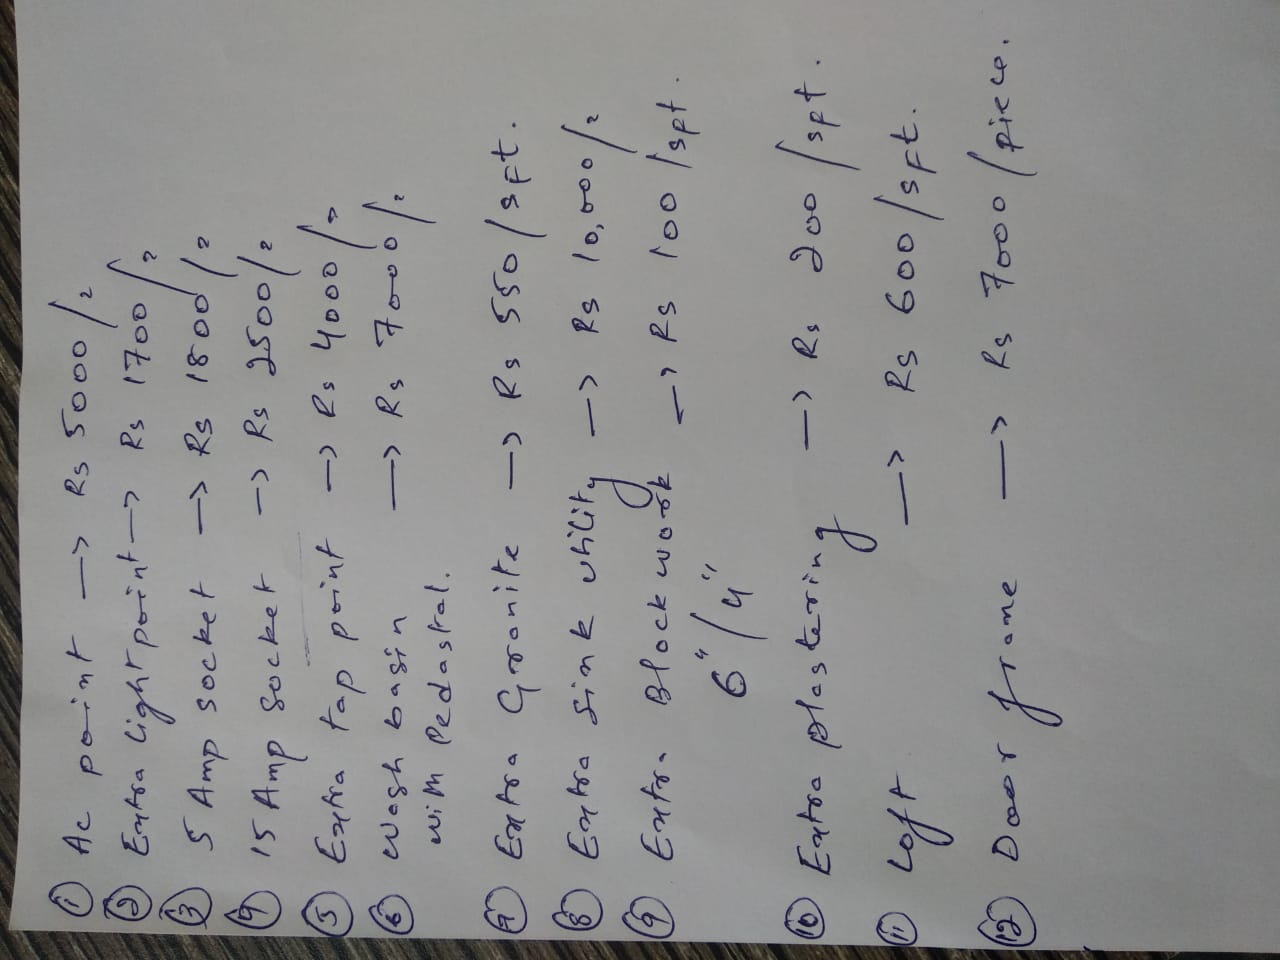 ① Ac point —> Rs 5000/-
② Extra light point —> Rs 1700/-
③ 5 Amp socket —> Rs 1800/-
④ 15 Amp socket —> Rs 2500/-
⑤ Extra tap point —> Rs 4000/-
⑥ wash basin —> Rs 7000/-
with Pedastral.
⑦ Extra Granite —> Rs 550/sft.
⑧ Extra Sink utility —> Rs 10,000/-
⑨ Extra Block work —> Rs 100/sft.
6"/4"
⑩ Extra plastering —> Rs 200/sft.
⑪ Loft —> Rs 600/sft.
⑫ Door frame —> Rs 7000/piece.